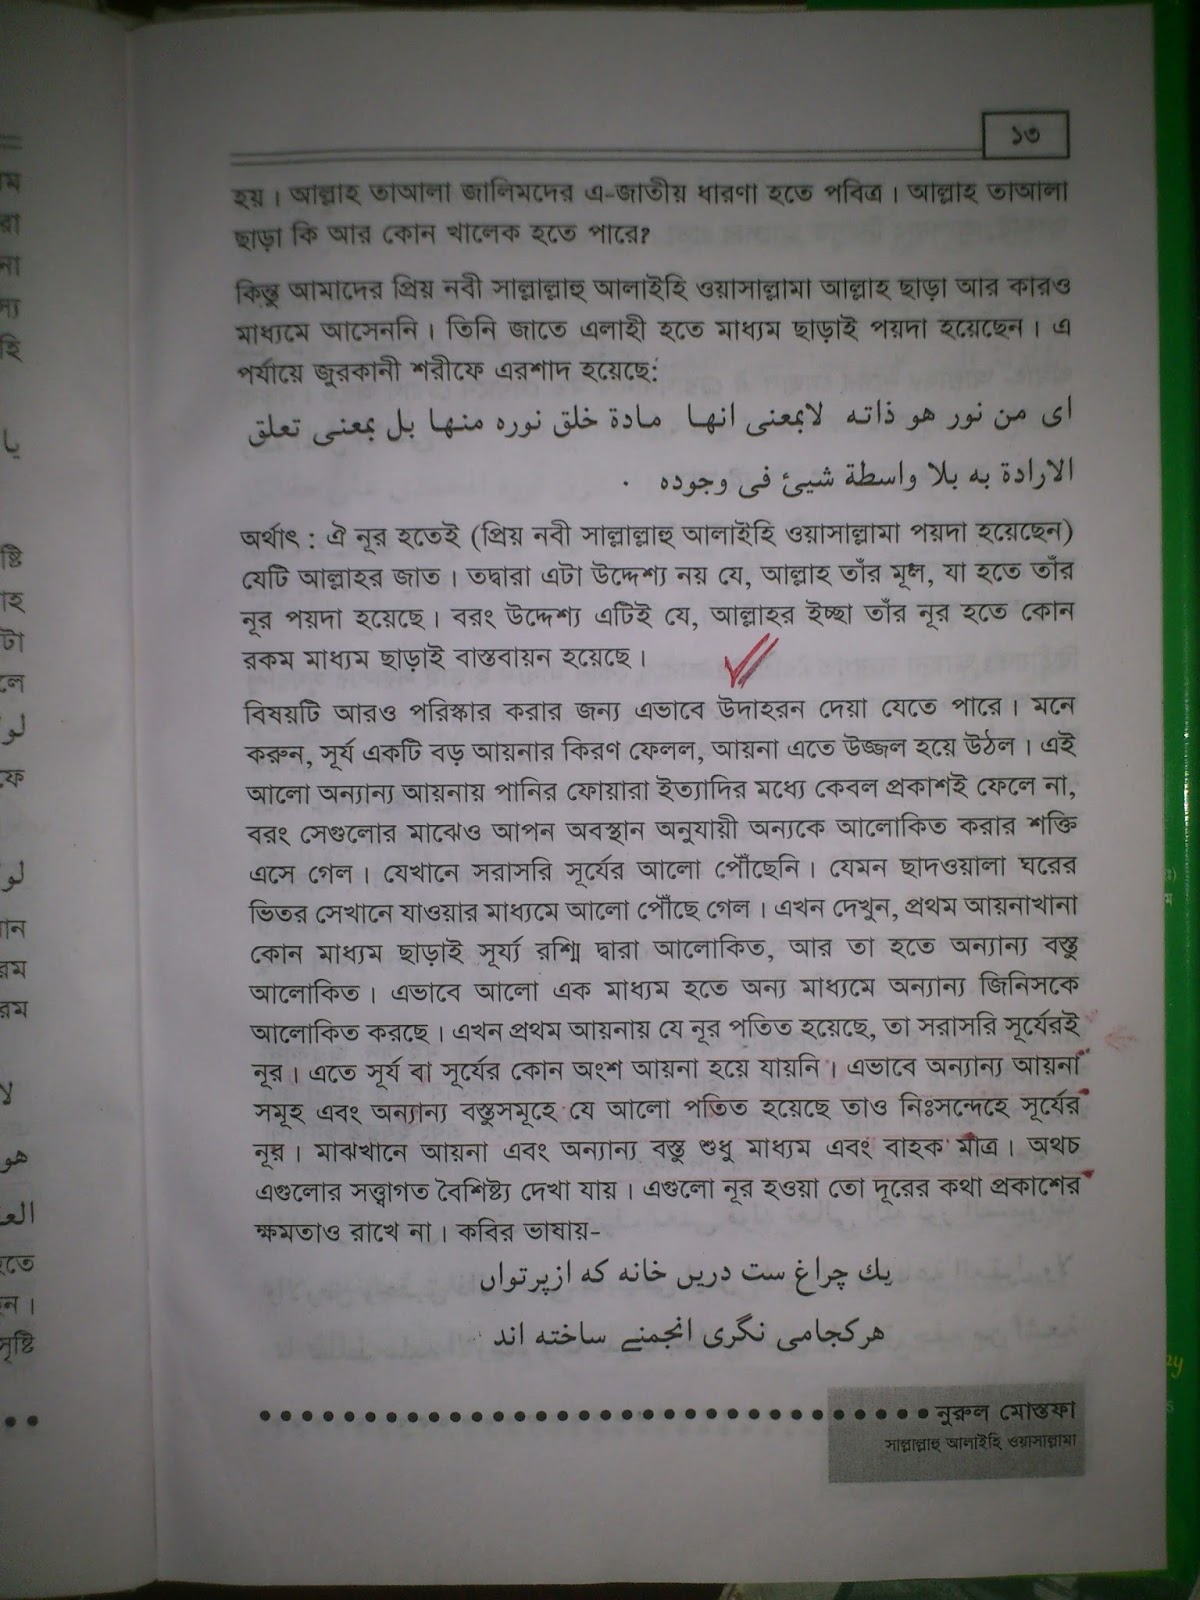 ১৩
হয়। আল্লাহ তাআলা জালিমদের এ-জাতীয় ধারণা হতে পবিত্র। আল্লাহ তাআলা
ছাড়া কি আর কোন খালেক হতে পারে?
কিন্তু আমাদের প্রিয় নবী সাল্লাল্লাহু আলাইহি ওয়াসাল্লামা আল্লাহ ছাড়া আর কারও
মাধ্যমে আসেননি। তিনি জাতে এলাহী হতে মাধ্যম ছাড়াই পয়দা হয়েছেন। এ
পর্যায়ে জুরকানী শরীফে এরশাদ হয়েছে:
اى من نور هو ذاته لابمعنى انها مادة خلق نوره منها بل بمعنى تعلق
الارادة به بلا واسطة شيئ فى وجوده ۰
অর্থাৎ : ঐ নূর হতেই (প্রিয় নবী সাল্লাল্লাহু আলাইহি ওয়াসাল্লামা পয়দা হয়েছেন)
যেটি আল্লাহর জাত। তদ্বারা এটা উদ্দেশ্য নয় যে, আল্লাহ তাঁর মূল, যা হতে তাঁর
নূর পয়দা হয়েছে। বরং উদ্দেশ্য এটিই যে, আল্লাহর ইচ্ছা তাঁর নূর হতে কোন
রকম মাধ্যম ছাড়াই বাস্তবায়ন হয়েছে।
বিষয়টি আরও পরিস্কার করার জন্য এভাবে উদাহরন দেয়া যেতে পারে। মনে
করুন, সূর্য একটি বড় আয়নার কিরণ ফেলল, আয়না এতে উজ্জল হয়ে উঠল। এই
আলো অন্যান্য আয়নায় পানির ফোয়ারা ইত্যাদির মধ্যে কেবল প্রকাশই ফেলে না,
বরং সেগুলোর মাঝেও আপন অবস্থান অনুযায়ী অন্যকে আলোকিত করার শক্তি
এসে গেল। যেখানে সরাসরি সূর্যের আলো পৌঁছেনি। যেমন ছাদওয়ালা ঘরের
ভিতর সেখানে যাওয়ার মাধ্যমে আলো পৌঁছে গেল। এখন দেখুন, প্রথম আয়নাখানা
কোন মাধ্যম ছাড়াই সূর্য্য রশ্মি দ্বারা আলোকিত, আর তা হতে অন্যান্য বস্তু
আলোকিত। এভাবে আলো এক মাধ্যম হতে অন্য মাধ্যমে অন্যান্য জিনিসকে
আলোকিত করছে। এখন প্রথম আয়নায় যে নূর পতিত হয়েছে, তা সরাসরি সূর্যেরই
নূর। এতে সূর্য বা সূর্যের কোন অংশ আয়না হয়ে যায়নি। এভাবে অন্যান্য আয়না
সমূহ এবং অন্যান্য বস্তুসমূহে যে আলো পতিত হয়েছে তাও নিঃসন্দেহে সূর্যের
নূর। মাঝখানে আয়না এবং অন্যান্য বস্তু শুধু মাধ্যম এবং বাহক মাত্র। অথচ
এগুলোর সত্ত্বাগত বৈশিষ্ট্য দেখা যায়। এগুলো নূর হওয়া তো দূরের কথা প্রকাশের
ক্ষমতাও রাখে না। কবির ভাষায়-
يك چراغ ست دريں خانه كه ازپرتواں
هركجامى نگرى انجمنے ساخته اند
নুরুল মোস্তফা
সাল্লাল্লাহু আলাইহি ওয়াসাল্লামা